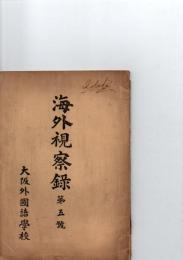 海外視察錄
第五號
大阪外國語學校